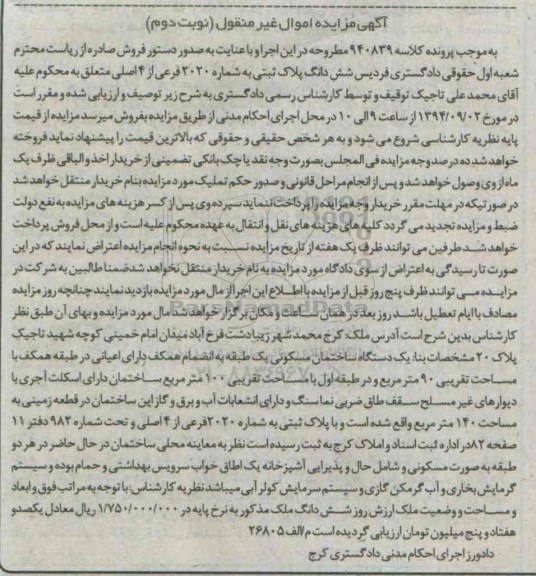 آگهی مزایده اموال غیر منقول (نوبت دوم)
به موجب پرونده کلاسه ۹۴۰۸۳۹ مطروحه در این اجرا و با عنایت به صدور دستور فروش صادره از ریاست محترم
شعبه اول حقوقی دادگستری فردیس شش دانگ پلاک ثبتی به شماره ۲۰۲۰ فرعی از ۴ اصلی متعلق به محکوم علیه
آقای محمد علی تاجیک توقیف و توسط کارشناس رسمی دادگستری به شرح زیر توصیف و ارزیابی شده و مقرر است
در مورخ ۱۳۹۴/۰۹/۰۲ از ساعت ۹ الی ۱۰ در محل اجرای احکام مدنی از طریق مزایده بفروش میرسد مزایده از قیمت
پایه نظریه کارشناسی شروع می شود و به هر شخص حقیقی و حقوقی که بالاترین قیمت را پیشنهاد نماید فروخته
خواهد شد ده درصد وجه مزایده فی المجلس بصورت وجه نقد یا چک بانکی تضمینی از خریدار اخذ و الباقی ظرف یک
ماه از وی وصول خواهد شد و پس از انجام مراحل قانونی و صدور حکم تملیک مورد مزایده بنام خریدار منتقل خواهد شد
در صورتیکه در مهلت مقرر خریدار وجه مزایده را پرداخت ننماید سپرده وی پس از کسر هزینه های مزایده به نفع دولت
ضبط و مزایده تجدید می گردد کلیه های هزینه های نقل و انتقال به عهده محکوم علیه است و از محل فروش پرداخت
خواهد شد طرفین می توانند ظرف یک هفته از تاریخ مزایده نسبت به نحوه انجام مزایده اعتراض نمایند که در این
صورت تا رسیدگی به اعتراض از سوی دادگاه مورد مزایده به نام خریدار منتقل نخواهد شد ضمنا طالبین به شرکت در
مزایده می توانند ظرف پنج روز قبل از مزایده با اطلاع این اجرا از مال مورد مزایده بازدید نمایند چنانچه روز مزایده
مصادف با ایام تعطیل باشد روز بعد در همان ساعت و مکان برگزار خواهد شد مال مورد مزایده و بهای آن طبق نظر
کارشناس بدین شرح است آدرس ملک: کرج محمد شهر زیبا دشت فرخ آباد میدان امام خمینی کوچه شهید تاجیک
پلاک ۲۰ مشخصات بنا: یک دستگاه ساختمان مسکونی یک طبقه به انضمام همکف دارای اعیانی در طبقه همکف با
مساحت تقریبی ۹۰ متر مربع و در طبقه اول با مساحت تقریبی ۱۰۰ متر مربع ساختمان دارای اسکلت آجری با
دیوارهای غیر مسلح سقف طاق ضربی نما سنگ و دارای انشعابات آب و برق و گاز این ساختمان در قطعه زمینی به
مساحت ۱۴۰ متر مربع واقع شده است و با پلاک ثبتی به شماره ۲۰۲۰ فرعی از ۴ اصلی و تحت شماره ۹۸۲ دفتر ۱۱
صفحه ۸۲ در اداره ثبت اسناد و املاک کرج به ثبت رسیده است نظر به معاینه محلی ساختمان در حال حاضر در هر دو
طبقه به صورت مسکونی و شامل حال و پذیرایی آشپزخانه یک اطاق خواب سرویس بهداشتی و حمام بوده و سیستم
گرمایش بخاری و آب گرمکن گازی و سیستم سرمایش کولر آبی میباشد نظریه کارشناس: با توجه به مراتب فوق و ابعاد
و مساحت و وضعیت ملک ارزش روز شش دانگ ملک مذکور به نرخ پایه در ۱/۷۵۰/۰۰۰/۰۰۰ ریال معادل یکصدو
هفتاد و پنج میلیون تومان ارزیابی گردیده است م/الف ۲۶۸۰۵
دادورز اجرای احکام مدنی دادگستری کرج